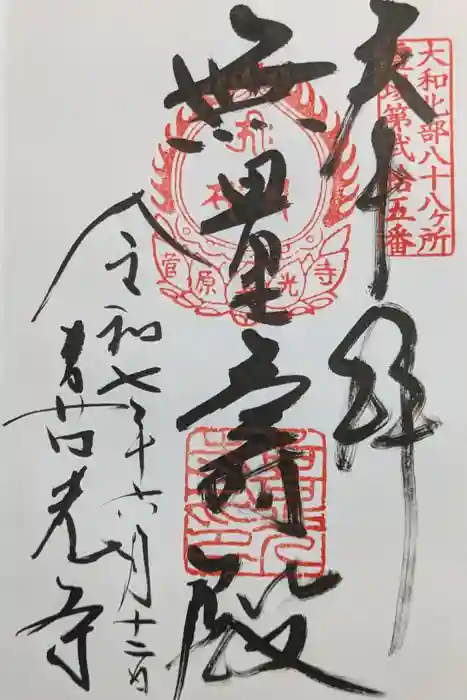 大和北部八十八ヶ所
霊場第弐拾五番
奉拝
無量壽殿
菅原喜光寺
令和七年六月十二日
喜光寺